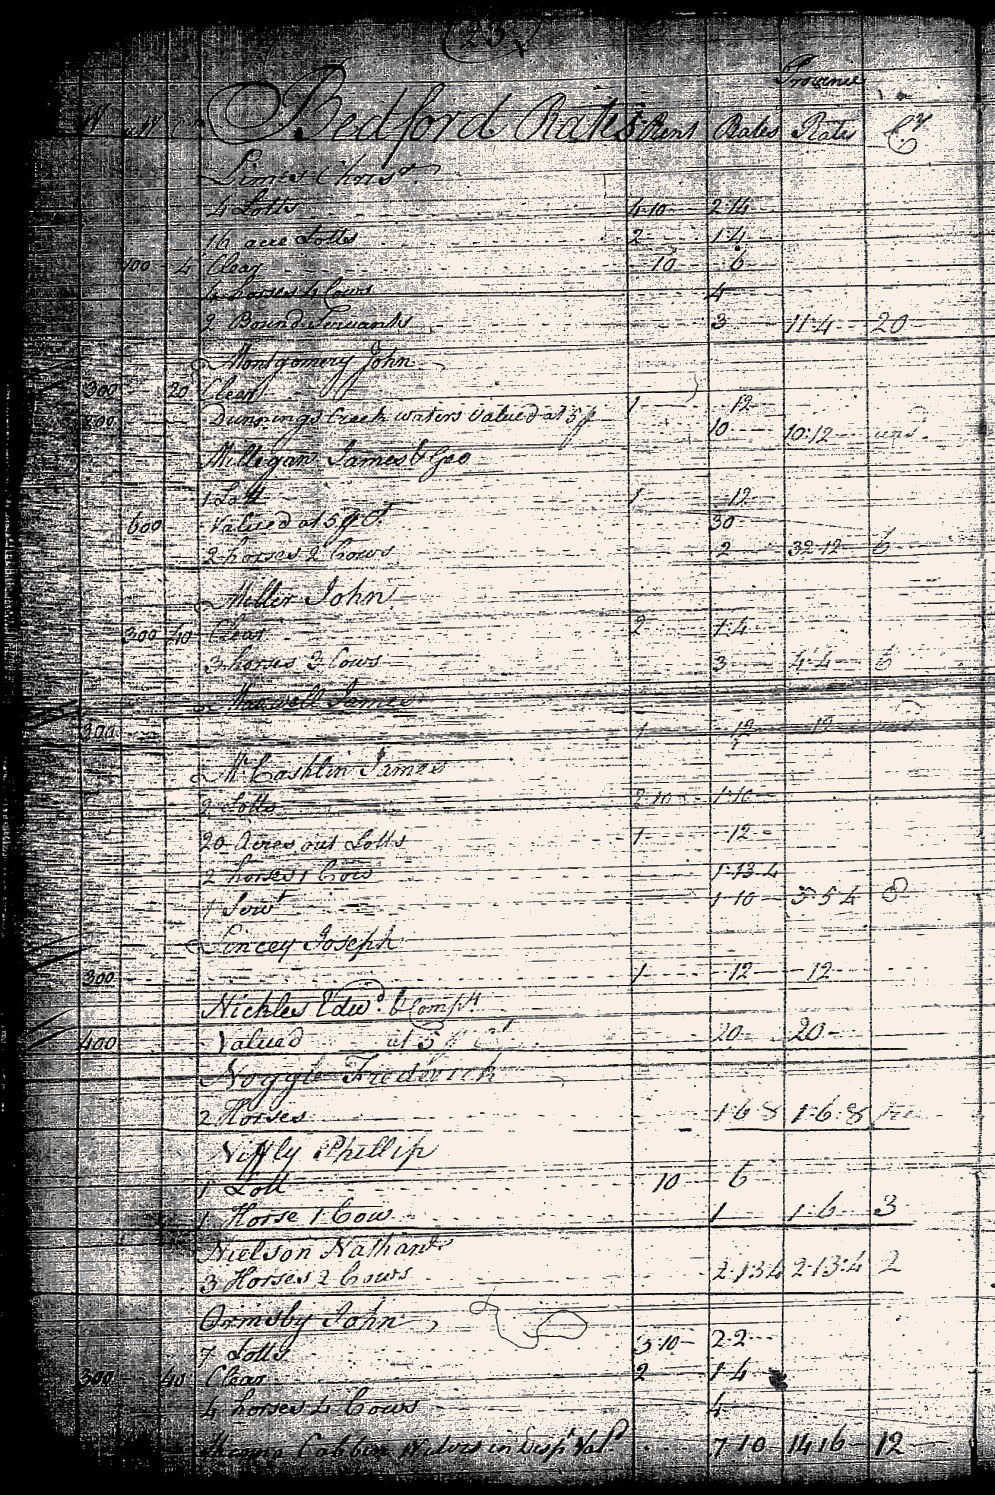 (23)
Province
W Bedford Rates Rent Rates Rates Cy
Limes Chrisr.
4 Lotts 4.10 2.14
16 acre Lotts 2 1.4
100 4 Clear 10 6
4 horses 4 Cows 4
2 Bound Servants 3 11.4 20
Montgomery John
300 20 Clear 1 12
Dunnings Creek waters Valued at 5 p 10 10.12
Milligan James & Geo
1 Lott 1 12
600 Valued at 5 p Ct. 30
2 horses 2 Cows 2 32.12 6
Miller John
300 40 Clear 2 1.4
3 horses 3 Cows 3 4.4 6
Maxwell James
300 1 12 12
McCashlin James
2 Lotts 2.10 1.10
20 Acres out Lotts 1 12
2 horses 1 Cow 1.13.4
1 Servt 1.10 5.5.4 8
Lincey Joseph
300 1 12 12
Nickles Edwd. & Compy
400 Valued at 5 p Ct 20 20
Noggle Frederick
2 Horses 1.6.8 1.6.8
Niffly Phillip
1 Lott 10 6
1 Horse 1 Cow 1 1.6 3
Nielson Nathanl
3 Horses 2 Cows 2.13.4 2.13.4 2
Ormsby John
7 Lotts 3.10 2.2
300 40 Clear 2 1.4
4 horses 4 Cows 4
in Dispt Vald 7.10 14.16 12